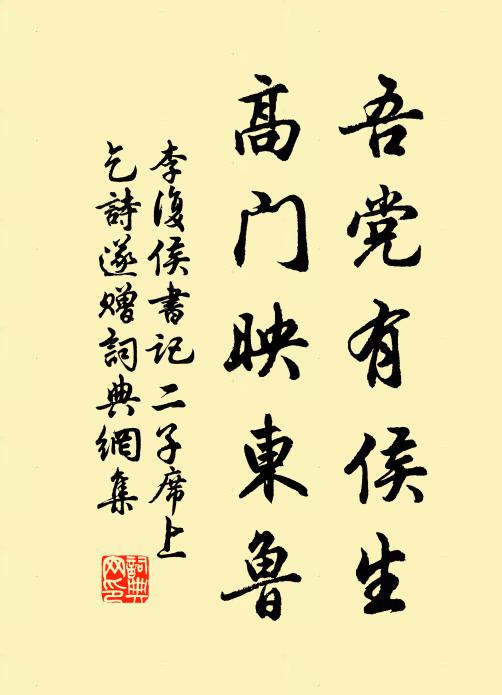 吾党有侯生
高门映東魯
李復侯書記二子席上
乞詩遂赠詞典網集
詞典
网印